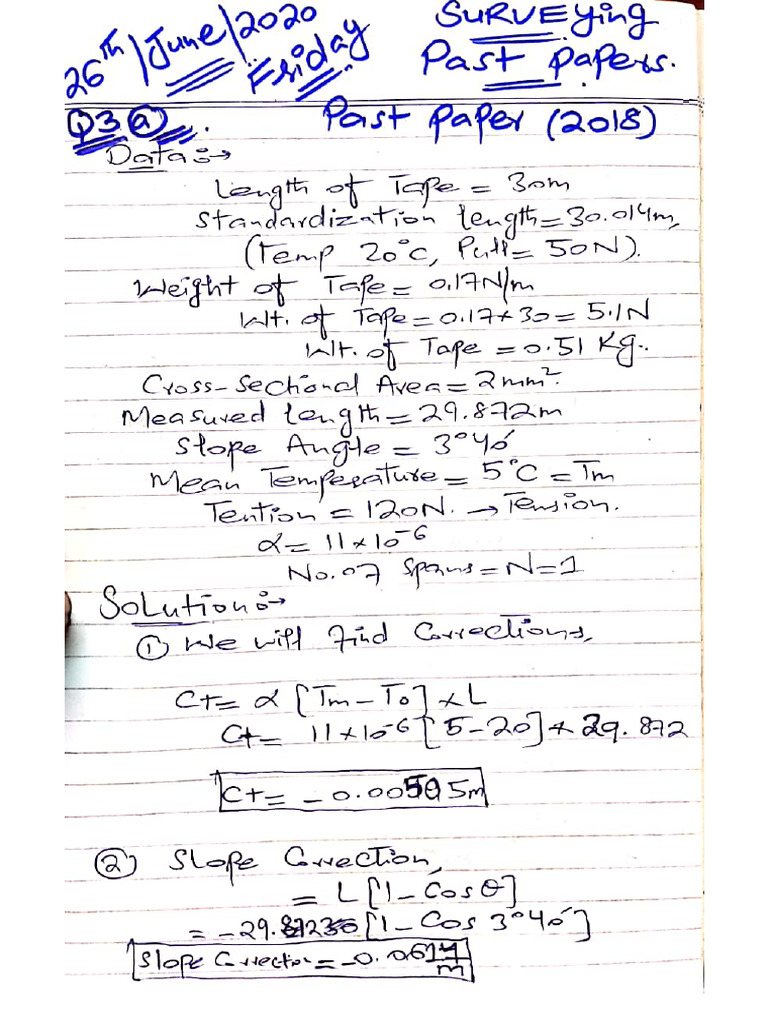 26th/June/2020
Friday
SURVEying
Past papers.
Q3 a.
Past paper (2018)
Data:→
Length of Tape = 30m
Standardization length=30.014m,
(Temp 20°C, Pull= 50N).
Weight of Tape= 0.17N/m
Wt. of Tape=0.17×30=5.1N
Wt. of Tape =0.51 Kg..
Cross-Sectional Area=2mm².
Measured length=29.872m
Slope Angle = 3°40'
Mean Temperature= 5°C =Tm
Tention = 120N. → Tension.
α= 11×10-6
No.of Spans=N=1
Solution:→
① We will find Corrections,
Ct= α [Tm-To] × L
Ct= 11×10-6 [5-20] × 29.872
Ct= -0.00505m
② Slope Correction,
= L[1-Cos θ]
= -29.872 [1-Cos 3°40']
Slope Correction = -0.0614 m